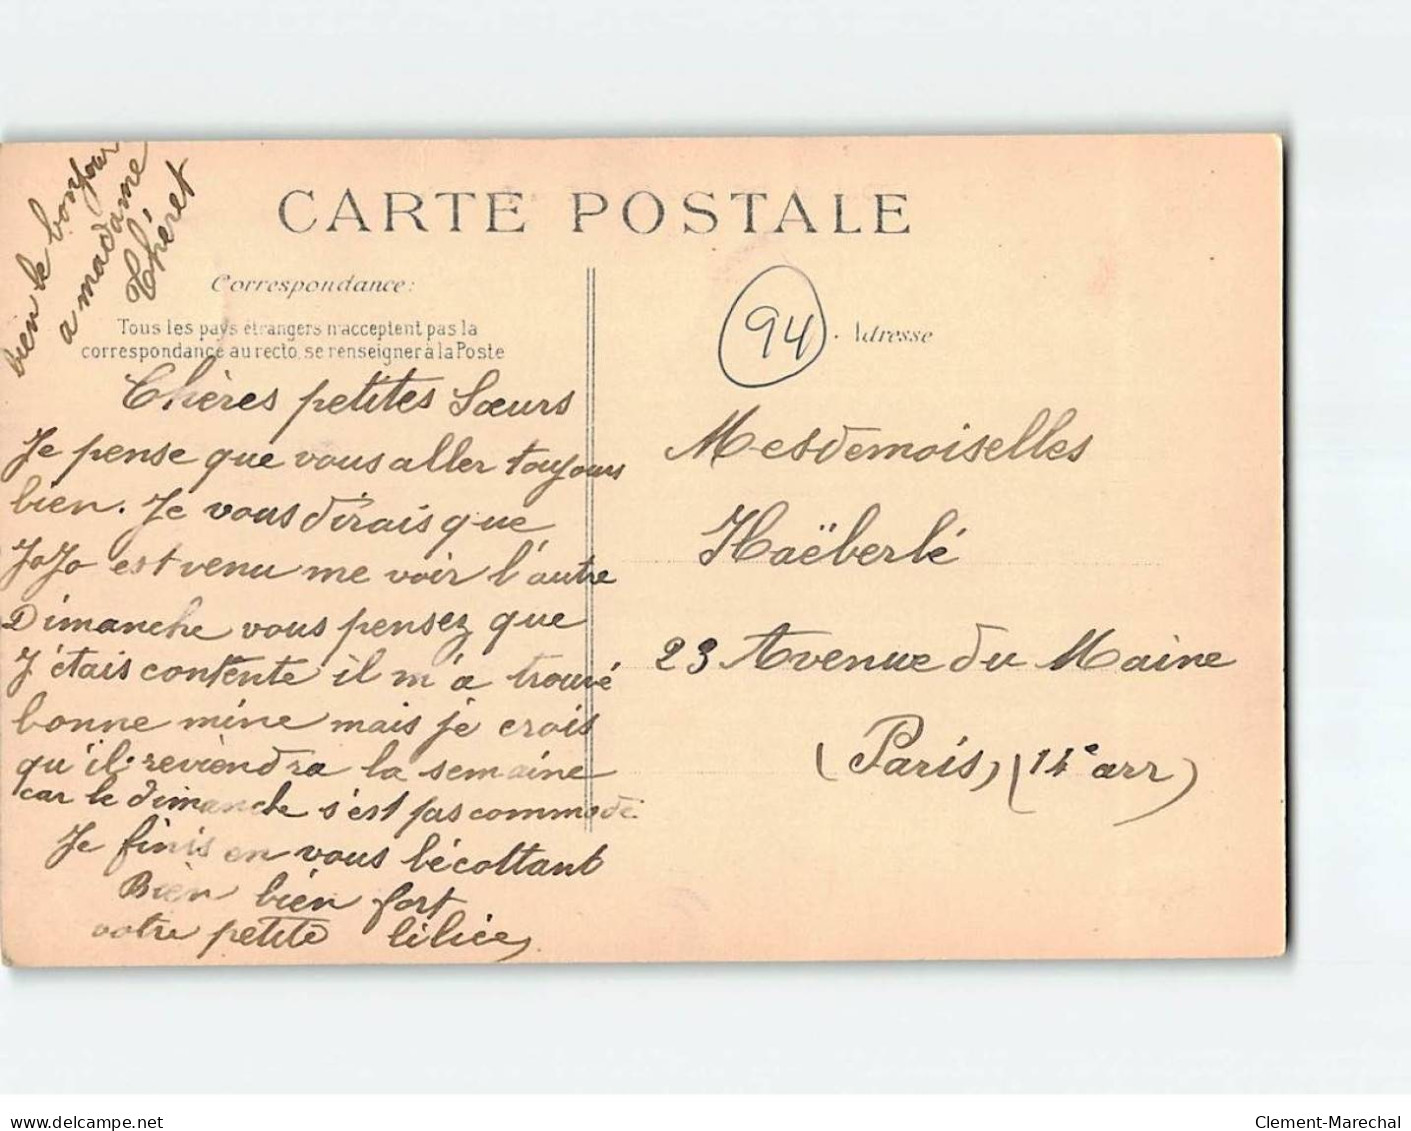 bien le bonjour
a madame
Théret
CARTE POSTALE
Correspondance:
Tous les pays étrangers n'acceptent pas la
correspondance au recto, se renseigner à la Poste
94
Adresse
Chères petites Sœurs
Je pense que vous aller toujours
bien. Je vous dirais que
JoJo est venu me voir l'autre
Dimanche vous pensez que
J'étais contente il m'a trouvé
bonne mine mais je crois
qu'il reviendra la semaine
car le dimanche s'est pas commode
Je finis en vous bécottant
Bien bien fort
votre petite Lilice
Mesdemoiselles
Haëberlé
23 Avenue du Maine
(Paris) (14e arr)
delcampe.net
Clement-Marechal